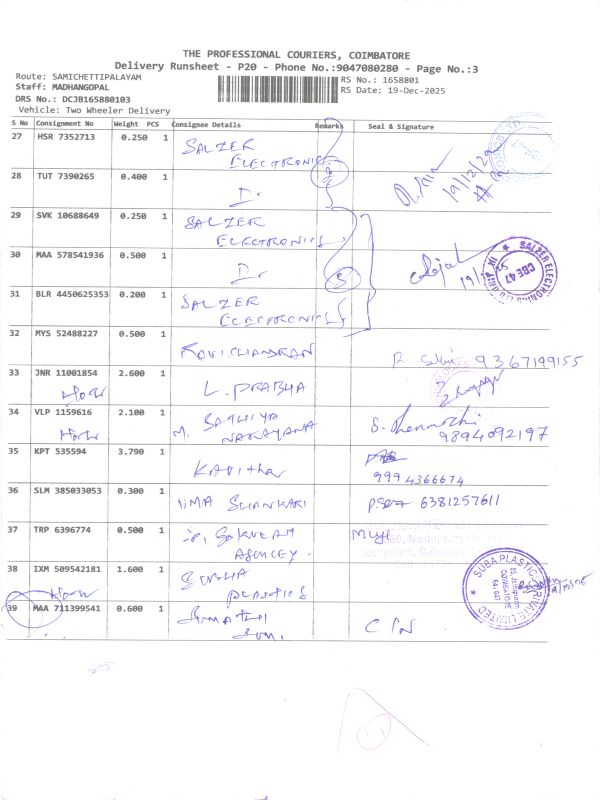 THE PROFESSIONAL COURIERS, COIMBATORE
Delivery Runsheet - P20 - Phone No.:9047080280 - Page No.:3
Route: SAMICHETTIPALAYAM
Staff: MADHANGOPAL
DRS No.: DCJB165880103
Vehicle: Two Wheeler Delivery
RS No.: 1658801
RS Date: 19-Dec-2025
S No Consignment No Weight PCS Consignee Details Remarks Seal & Signature
27 HSR 7352713 0.250 1 SALZER
ELECTRONICS
28 TUT 7390265 0.400 1
19/12/25
29 SVK 10688649 0.250 1 SALZER
ELECTRONICS
30 MAA 578541936 0.500 1
SALZER ELECTRONICS
CBE 47
31 BLR 4450625353 0.200 1 SALZER
ELECTRONICS
32 MYS 52488227 0.500 1 RAVICHANDRAN 9367199155
33 JNR 11001854 2.600 1 L. PRABHA
34 VLP 1159616 2.100 1 M. SATHIYA
NARAYANA
9894092197
35 KPT 535594 3.790 1 KAVITHA
9994366674
36 SLM 385033053 0.300 1 UMA SHANKARI 6381257611
37 TRP 6396774 0.500 1
AGENCEY
38 IXM 509542181 1.600 1
PLASTICS
SUBA PLASTICS PRIVATE LIMITED
COIMBATORE
641 047
39 MAA 711399541 0.600 1